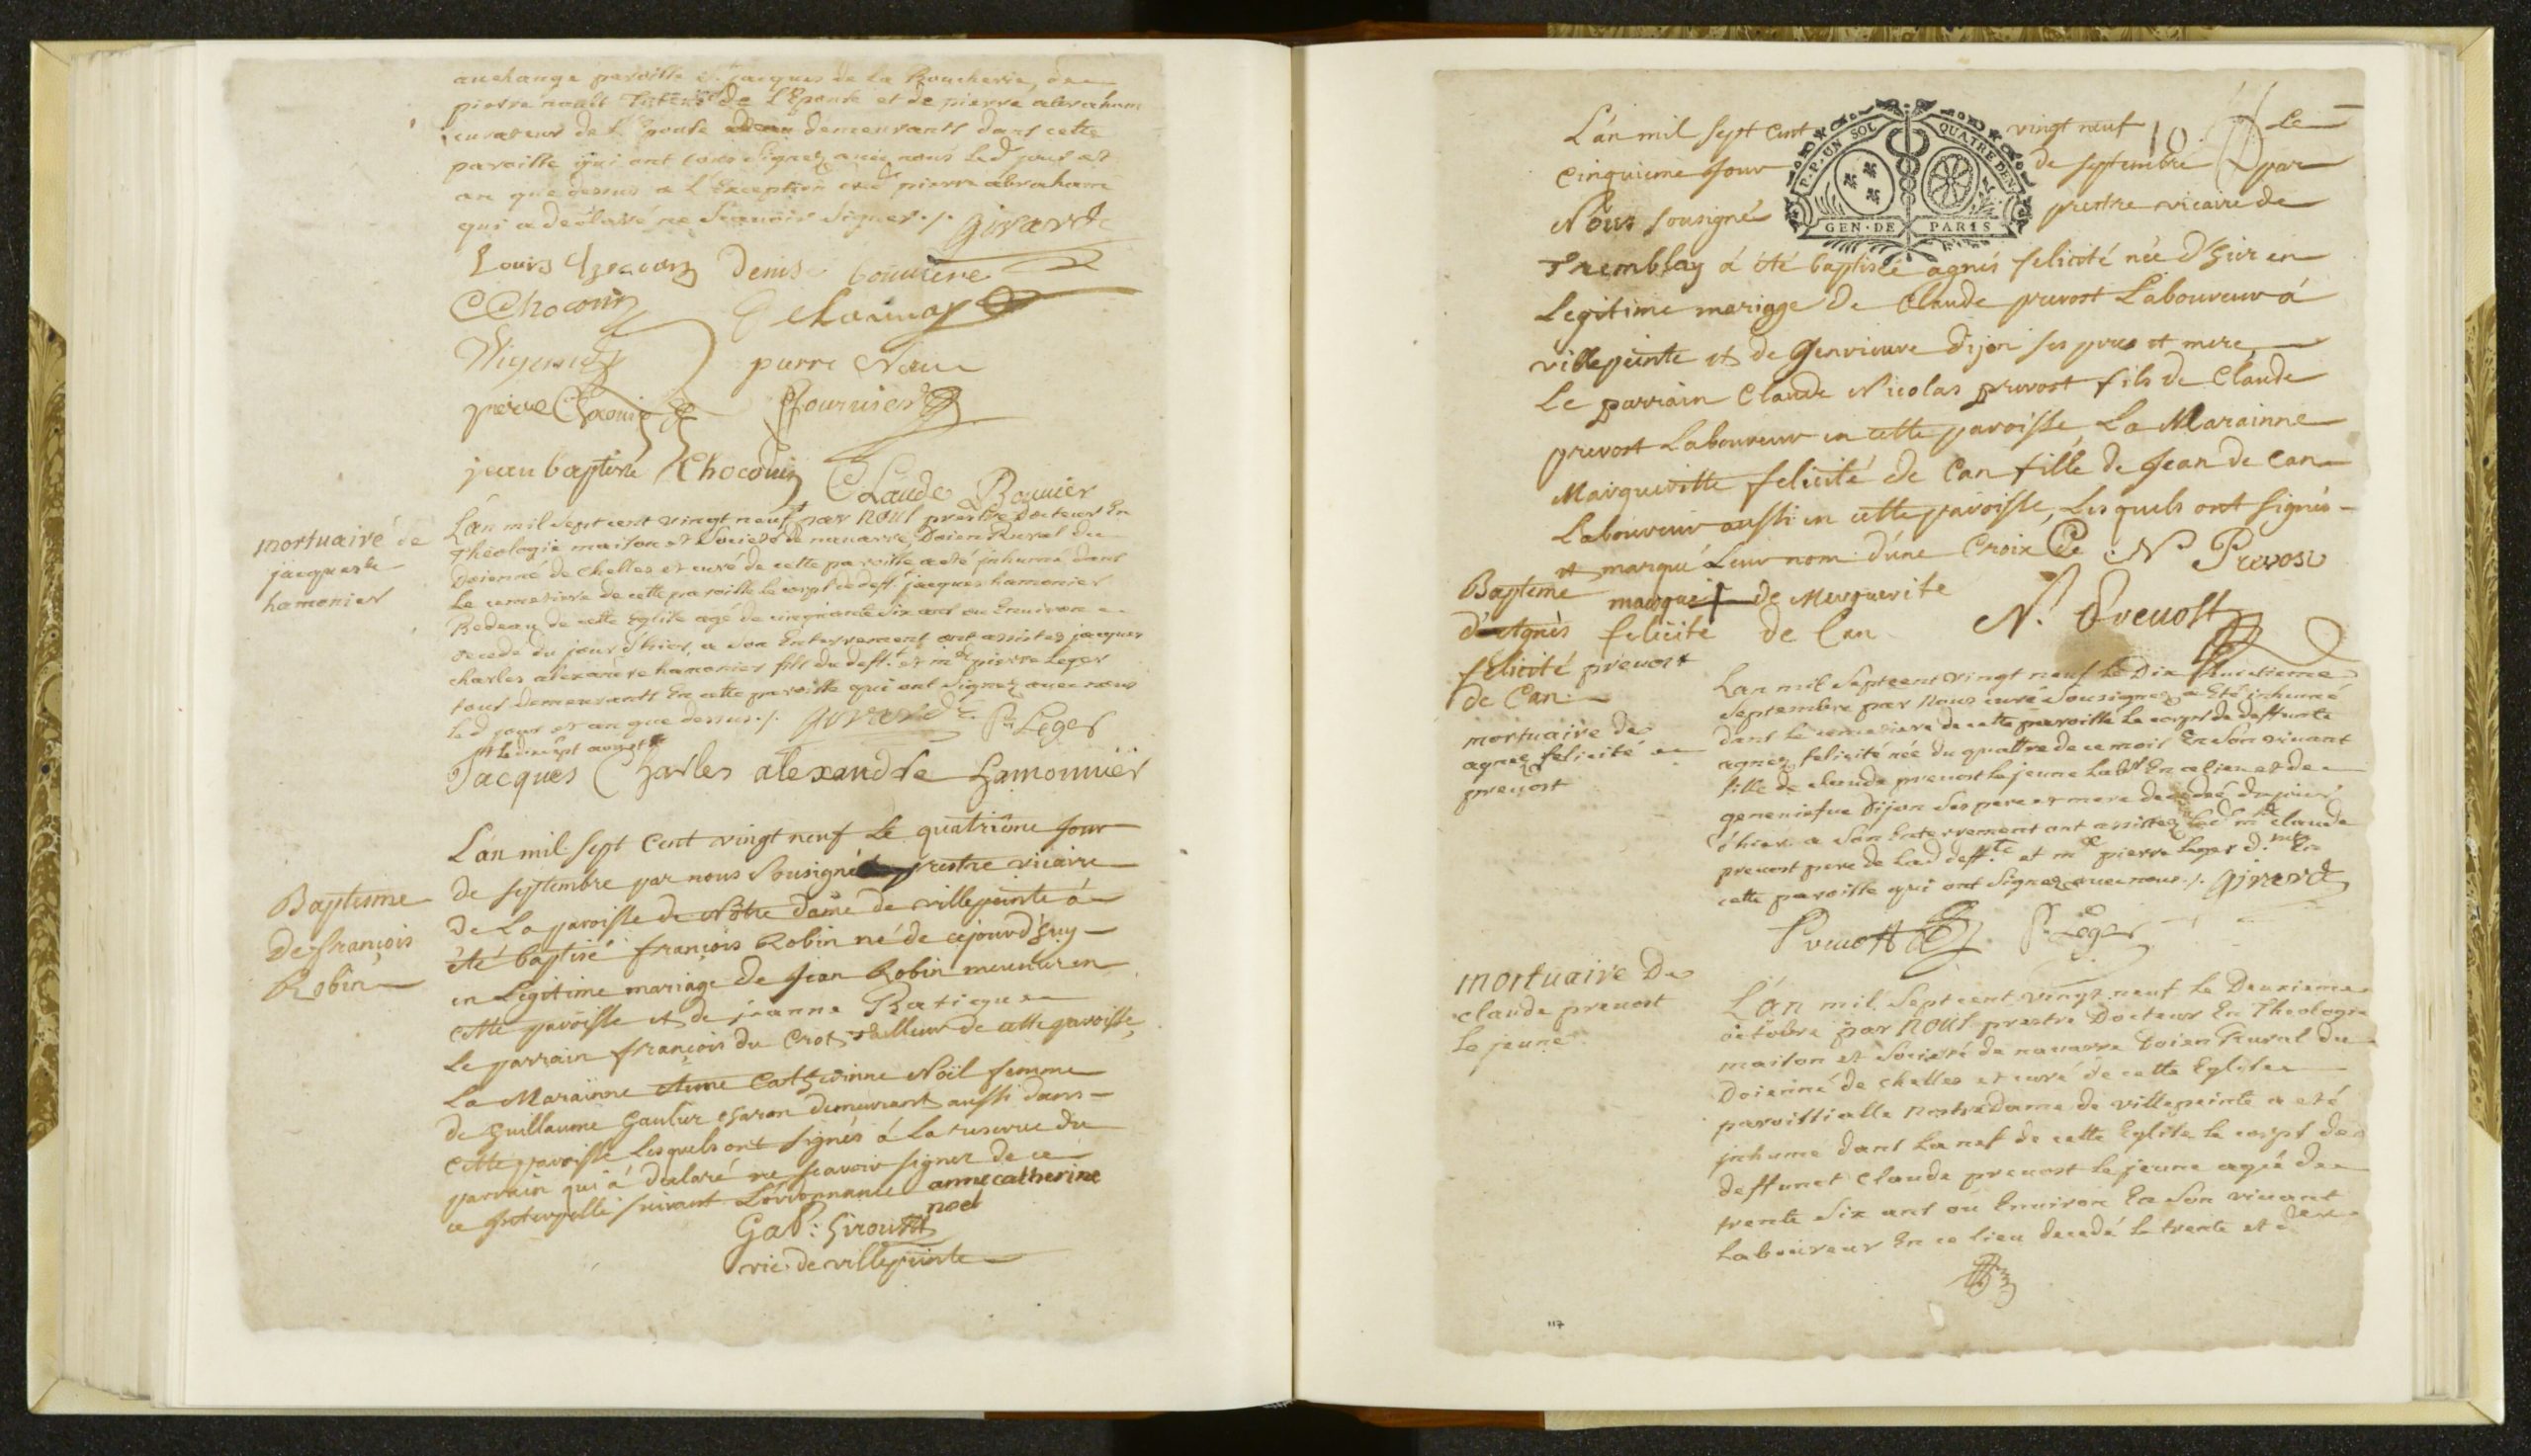 auchange paroisse S. jacques de la Boucherie, de
pierre nault Tuteur de L'Epouse et de pierre abraham
curateur de L'Epouse demeurants dans cette
paroisse qui ont tous Signez avec nous led jour et
an que dessus a L'Exception dud pierre abraham
qui a declaré ne Scavoir Signer ./. Girard
Louis Denise bouuiere
C Chocouin
pierre Nau
pierre fournier
jean baptiste Chocouin Claude Bouuier
mortuaire de
jacques
hamonier
L'an mil Sept cent vingt neuf par nous prestre docteur En
Theologie maison et Societé de nauarre Doien Rural du
Doienné de chelles et curé de cette paroisse a eté jnhumé dans
Le cemetiere de cette paroisse le corps de deff.t jacques hamonier
Bedeau de cette Eglise agé de cinquante Six ans ou Enuiron
decedé du jour d'hier, a son Enterrement ont assistez jacques
charles alexandre hamonier fils du deff.t et m.e pierre Leger
tous demeurants En cette paroisse qui ont Signez auec nous
led jour et an que dessus ./. Girard P. Leger
le dixsept aoust
Jacques Charles alexandre hamonnier
Baptesme
De françois
Robin
L'an mil sept cent vingt neuf Le quatriéme Jour
de septembre par nous Sousigné prestre vicaire
de La paroisse de Nôtre dame de villepeinte á
été baptisé françois Robin né de cejourd'huy
en Legitime mariage de Jean Robin meusnier en
cette paroisse et de jeanne Batique
Le parrain françois du Crot tailleur de cette paroisse,
La Marainne Anne Catherinne Noël femme
de Guillaume Gautier charon demeurant aussi dans
cette paroisse Lesquels ont signés á La reserve du
parrain qui á declaré ne scavoir signer de ce
ce Interpellé suivant L'ordonnance anne catherine
noel
Gab: Giroust
vic. de villepeinte
P.P. UN SOL QUATRE DEN.
GEN. DE PARIS
L'an mil sept Cent vingt neuf Le
Cinquiéme Jour de septembre par
Nous sousigné prestre vicaire de
Tremblay á été baptisée agnés felicité née d'hier en
Legitime mariage De Claude prevost Laboureur á
villepeinte et de Genvieuve dijon ses pere et mere,
Le parrain Claude Nicolas prevost fils de Claude
prevost Laboureur en cette paroisse, La Marainne
Margueritte felicité de Can fille de Jean de Can
Laboureur aussi en cette paroisse, Lesquels ont signés
et marqué Leur nom d'une Croix C N Prevost
marque † de Marguerite
felicite de Can N. Prevost
Baptême
d'Agnés
felicité prevost
de Can
mortuaire de
agnez felicité
preuost
Lan mil Septcent vingt neuf le Dix huictieme
Septembre par nous curé Sousignez a Eté inhumé
dans le cemetiere de cette paroisse Le corps de deffunte
agnez felicité née du quattre de ce mois En Son viuant
fille de claude preuost le jeune lab.r En ce lieu et de
geneuiefue Dijon Ses pere et mere decedée du jour
d'hier a Son Enterrement ont assistez led m.e claude
preuost pere de Lad deff.te et m.e pierre Leger d.nts En
cette paroisse qui ont Signez auec nous ./. Girard
Preuost P. Leger
mortuaire De
claude preuost
le jeune
L'an mil Septcent vingt neuf le Deuxieme
octobre par nous prestre Docteur En Theologie
maison et Societé de nauarre Doien Rural du
Doienné de chelles et curé de cette Eglise
paroissialle nostredame de villepeinte a eté
jnhumé dans La nef de cette Eglise le corps de
deffunct claude preuost le jeune agée de
trente Six ans ou Enuiron En Son viuant
Laboureur En ce lieu decedé le trente et
117